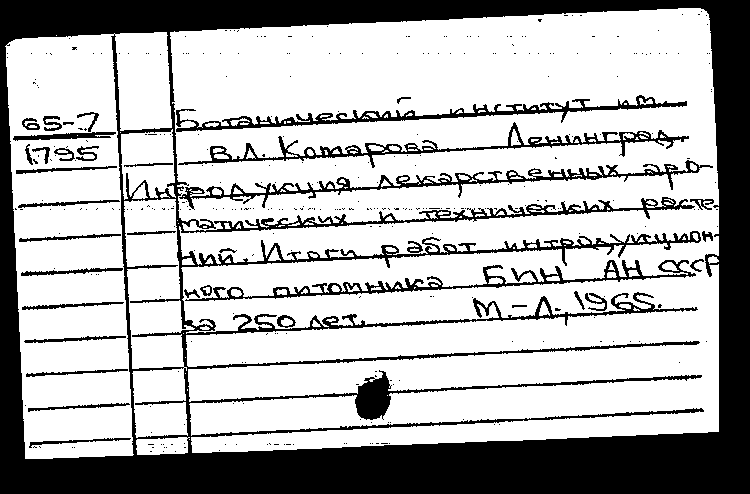 65-7 Ботанический институт им.
1795 В.Л. Комарова. Ленинград.
Интродукция лекарственных, аро-
матических и технических расте-
ний. Итоги работ интродукцион-
ного питомника БИН АН СССР
за 250 лет. М.-Л., 1965.